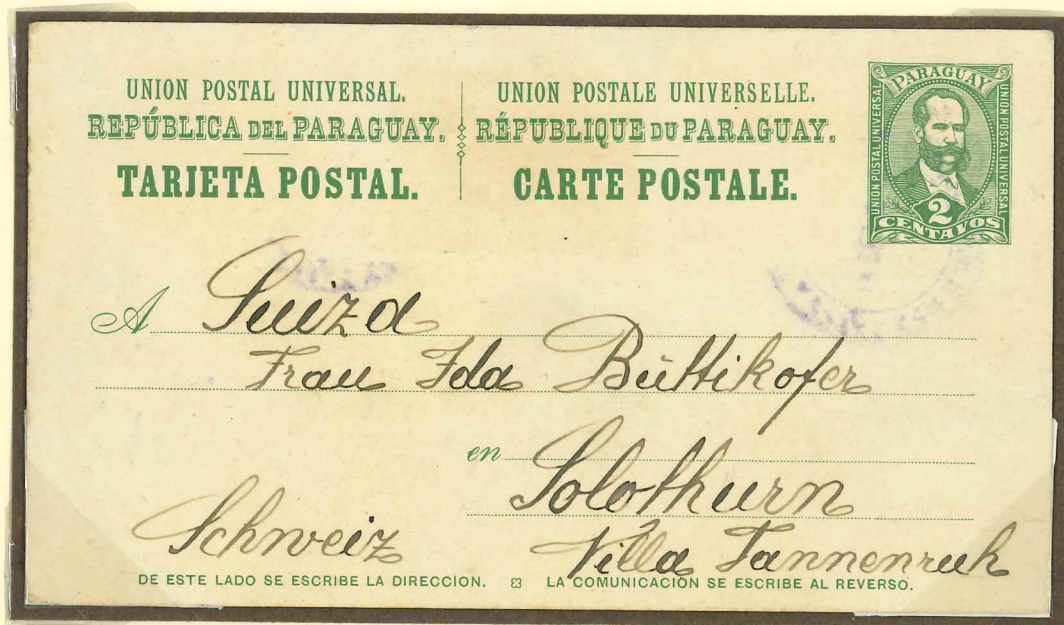 UNION POSTAL UNIVERSAL.
REPÚBLICA DEL PARAGUAY.
TARJETA POSTAL.
UNION POSTALE UNIVERSELLE.
RÉPUBLIQUE DU PARAGUAY.
CARTE POSTALE.
PARAGUAY
UNION POSTAL UNIVERSAL
UNION POSTAL UNIVERSAL
2
CENTAVOS
A Suiza
Frau Ida Büttikofer
en Solothurn
Schweiz Villa Tannenruh
DE ESTE LADO SE ESCRIBE LA DIRECCION. LA COMUNICACIÓN SE ESCRIBE AL REVERSO.